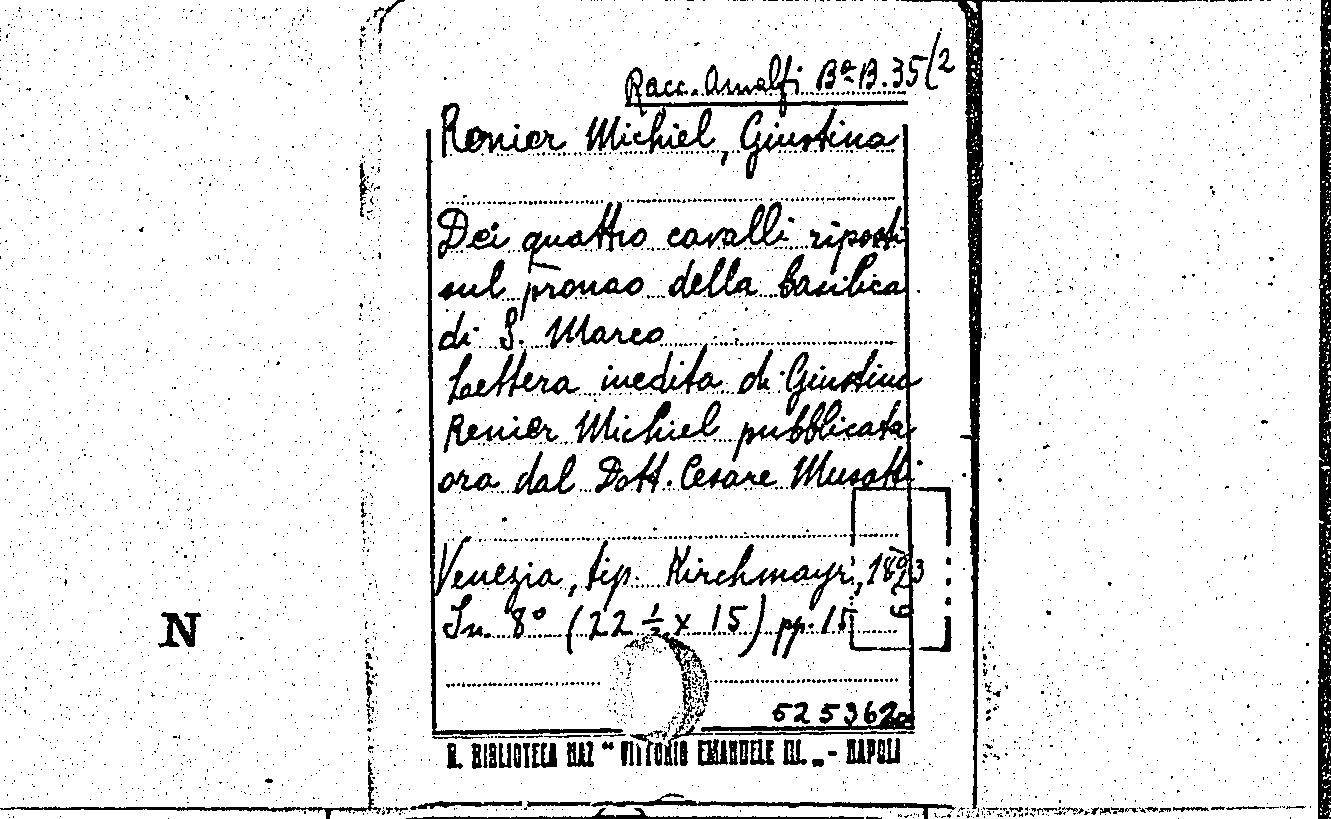 Racc. Amalfi Bª B. 35(2
Renier Michiel, Giustina
Dei quattro cavalli riposti
sul pronao della basilica
di S. Marco
Lettera inedita di Giustina
Renier Michiel pubblicata
ora dal Dott. Cesare Musatti
Venezia, tip. Kirchmayr, 1893
In. 8º (22 ½ x 15) pp. 15
N
525362
R. BIBLIOTECA NAZ " VITTORIO EMANUELE III. „ - NAPOLI